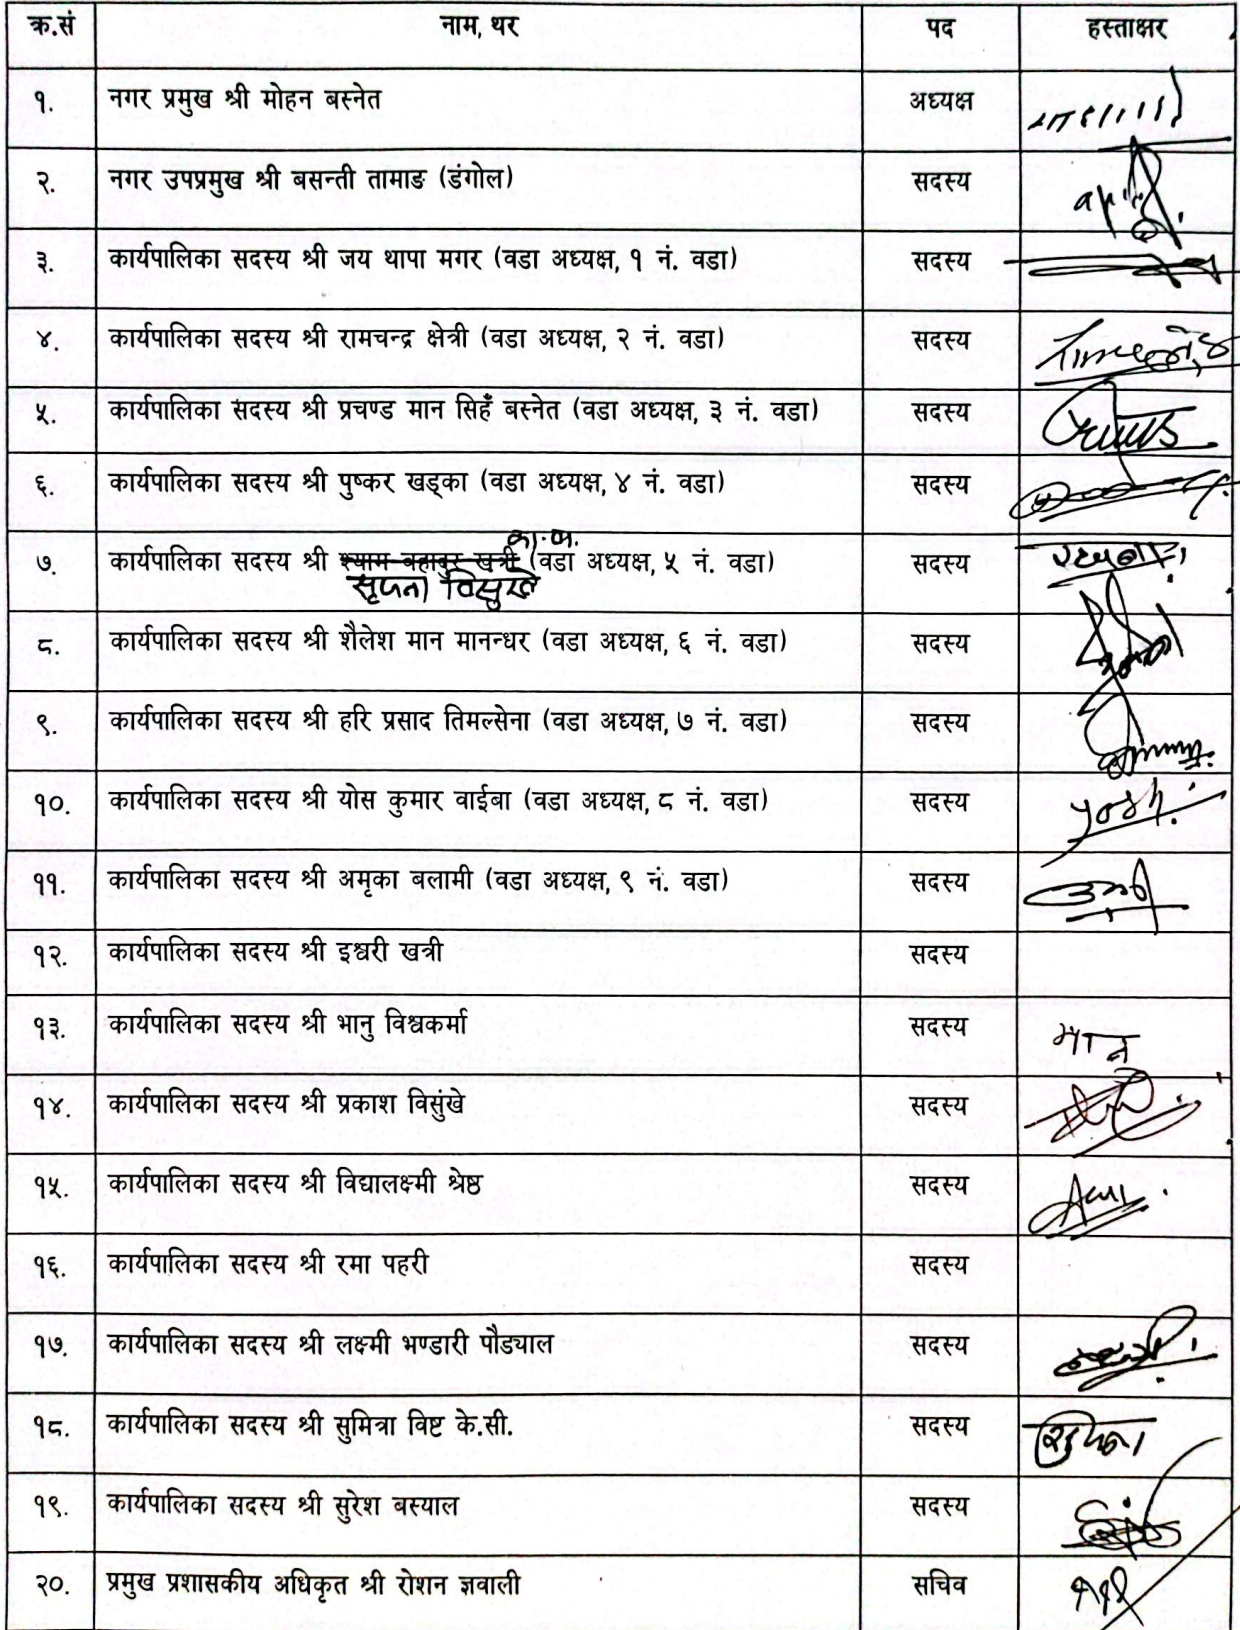 क्र.सं नाम, थर पद हस्ताक्षर
१. नगर प्रमुख श्री मोहन बस्नेत अध्यक्ष
२. नगर उपप्रमुख श्री बसन्ती तामाङ (डंगोल) सदस्य
३. कार्यपालिका सदस्य श्री जय थापा मगर (वडा अध्यक्ष, १ नं. वडा) सदस्य
४. कार्यपालिका सदस्य श्री रामचन्द्र क्षेत्री (वडा अध्यक्ष, २ नं. वडा) सदस्य
५. कार्यपालिका सदस्य श्री प्रचण्ड मान सिहँ बस्नेत (वडा अध्यक्ष, ३ नं. वडा) सदस्य
६. कार्यपालिका सदस्य श्री पुष्कर खड्का (वडा अध्यक्ष, ४ नं. वडा) सदस्य
का.वा.
७. कार्यपालिका सदस्य श्री श्याम बहादुर खत्री (वडा अध्यक्ष, ५ नं. वडा) सदस्य
सृजना विसुंखे
८. कार्यपालिका सदस्य श्री शैलेश मान मानन्धर (वडा अध्यक्ष, ६ नं. वडा) सदस्य
९. कार्यपालिका सदस्य श्री हरि प्रसाद तिमल्सेना (वडा अध्यक्ष, ७ नं. वडा) सदस्य
१०. कार्यपालिका सदस्य श्री योस कुमार वाईबा (वडा अध्यक्ष, ८ नं. वडा) सदस्य
११. कार्यपालिका सदस्य श्री अमृका बलामी (वडा अध्यक्ष, ९ नं. वडा) सदस्य
१२. कार्यपालिका सदस्य श्री इश्वरी खत्री सदस्य
१३. कार्यपालिका सदस्य श्री भानु विश्वकर्मा सदस्य
१४. कार्यपालिका सदस्य श्री प्रकाश विसुंखे सदस्य
१५. कार्यपालिका सदस्य श्री विद्यालक्ष्मी श्रेष्ठ सदस्य
१६. कार्यपालिका सदस्य श्री रमा पहरी सदस्य
१७. कार्यपालिका सदस्य श्री लक्ष्मी भण्डारी पौड्याल सदस्य
१८. कार्यपालिका सदस्य श्री सुमित्रा विष्ट के.सी. सदस्य
१९. कार्यपालिका सदस्य श्री सुरेश बस्याल सदस्य
२०. प्रमुख प्रशासकीय अधिकृत श्री रोशन ज्ञवाली सचिव